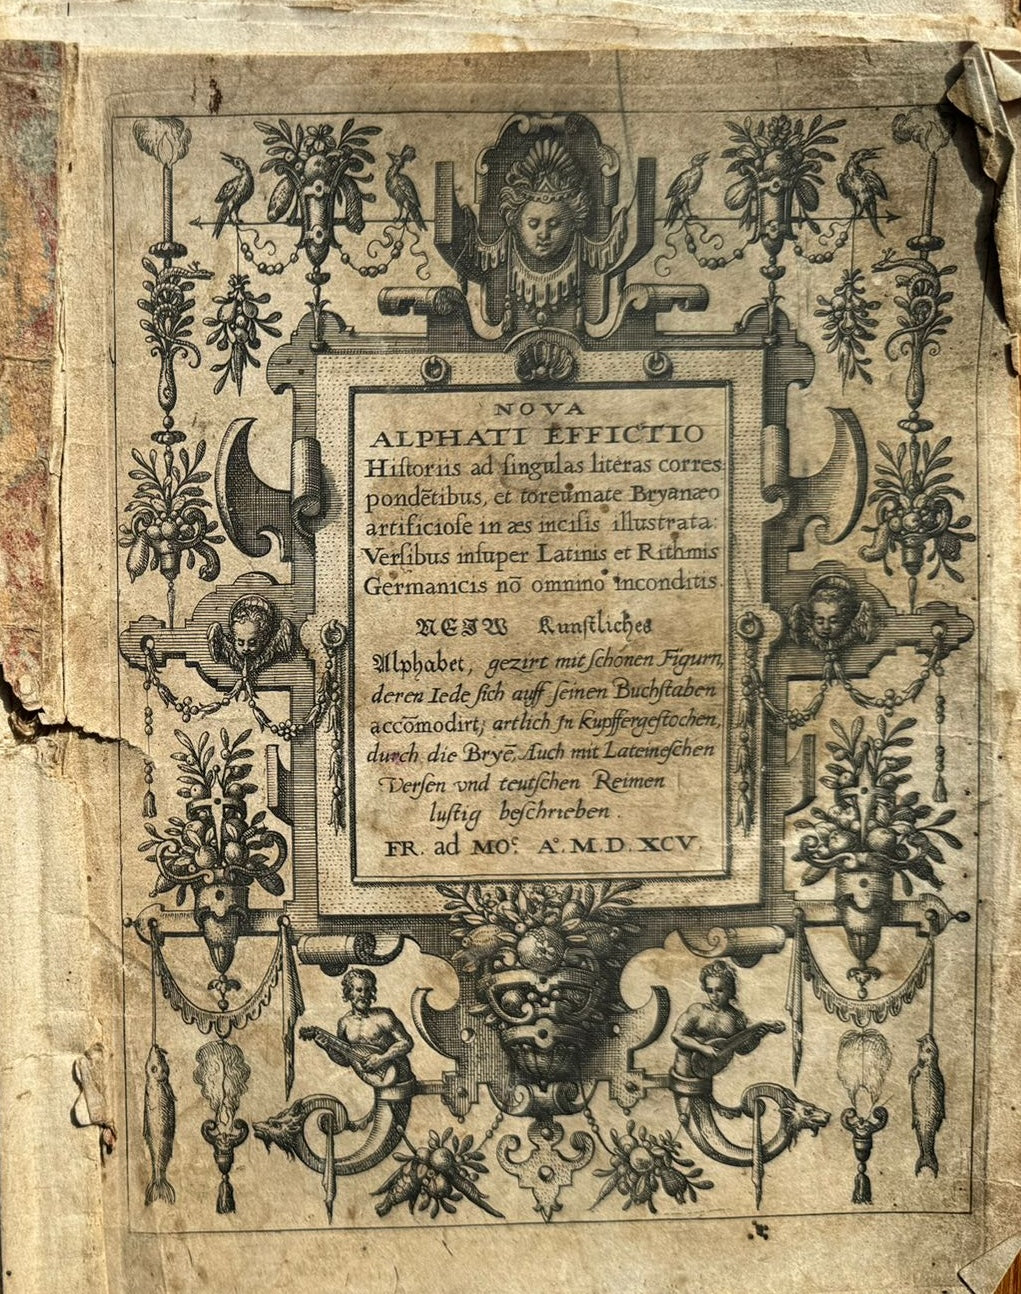 NOVA
ALPHATI EFFICTIO
Hiſtoriis ad ſingulas literas corres
pondẽtibus, et toreumate Bryanæo
artificioſe in æs inciſis illustrata:
Verſibus inſuper Latinis et Rithmis
Germanicis nō omnino inconditis.
NEIW Kunſtliches
Alphabet, gezirt mit ſchonen Figurn,
deren Iede ſich auff ſeinen Buchſtaben
accōmodirt, artlich jn kupffergeſtochen,
durch die Bryē, Auch mit Lateineſchen
Verſen vnd teutſchen Reimen
luſtig beſchrieben.
FR. ad MOᶜ. Aº. M.D.XCV.